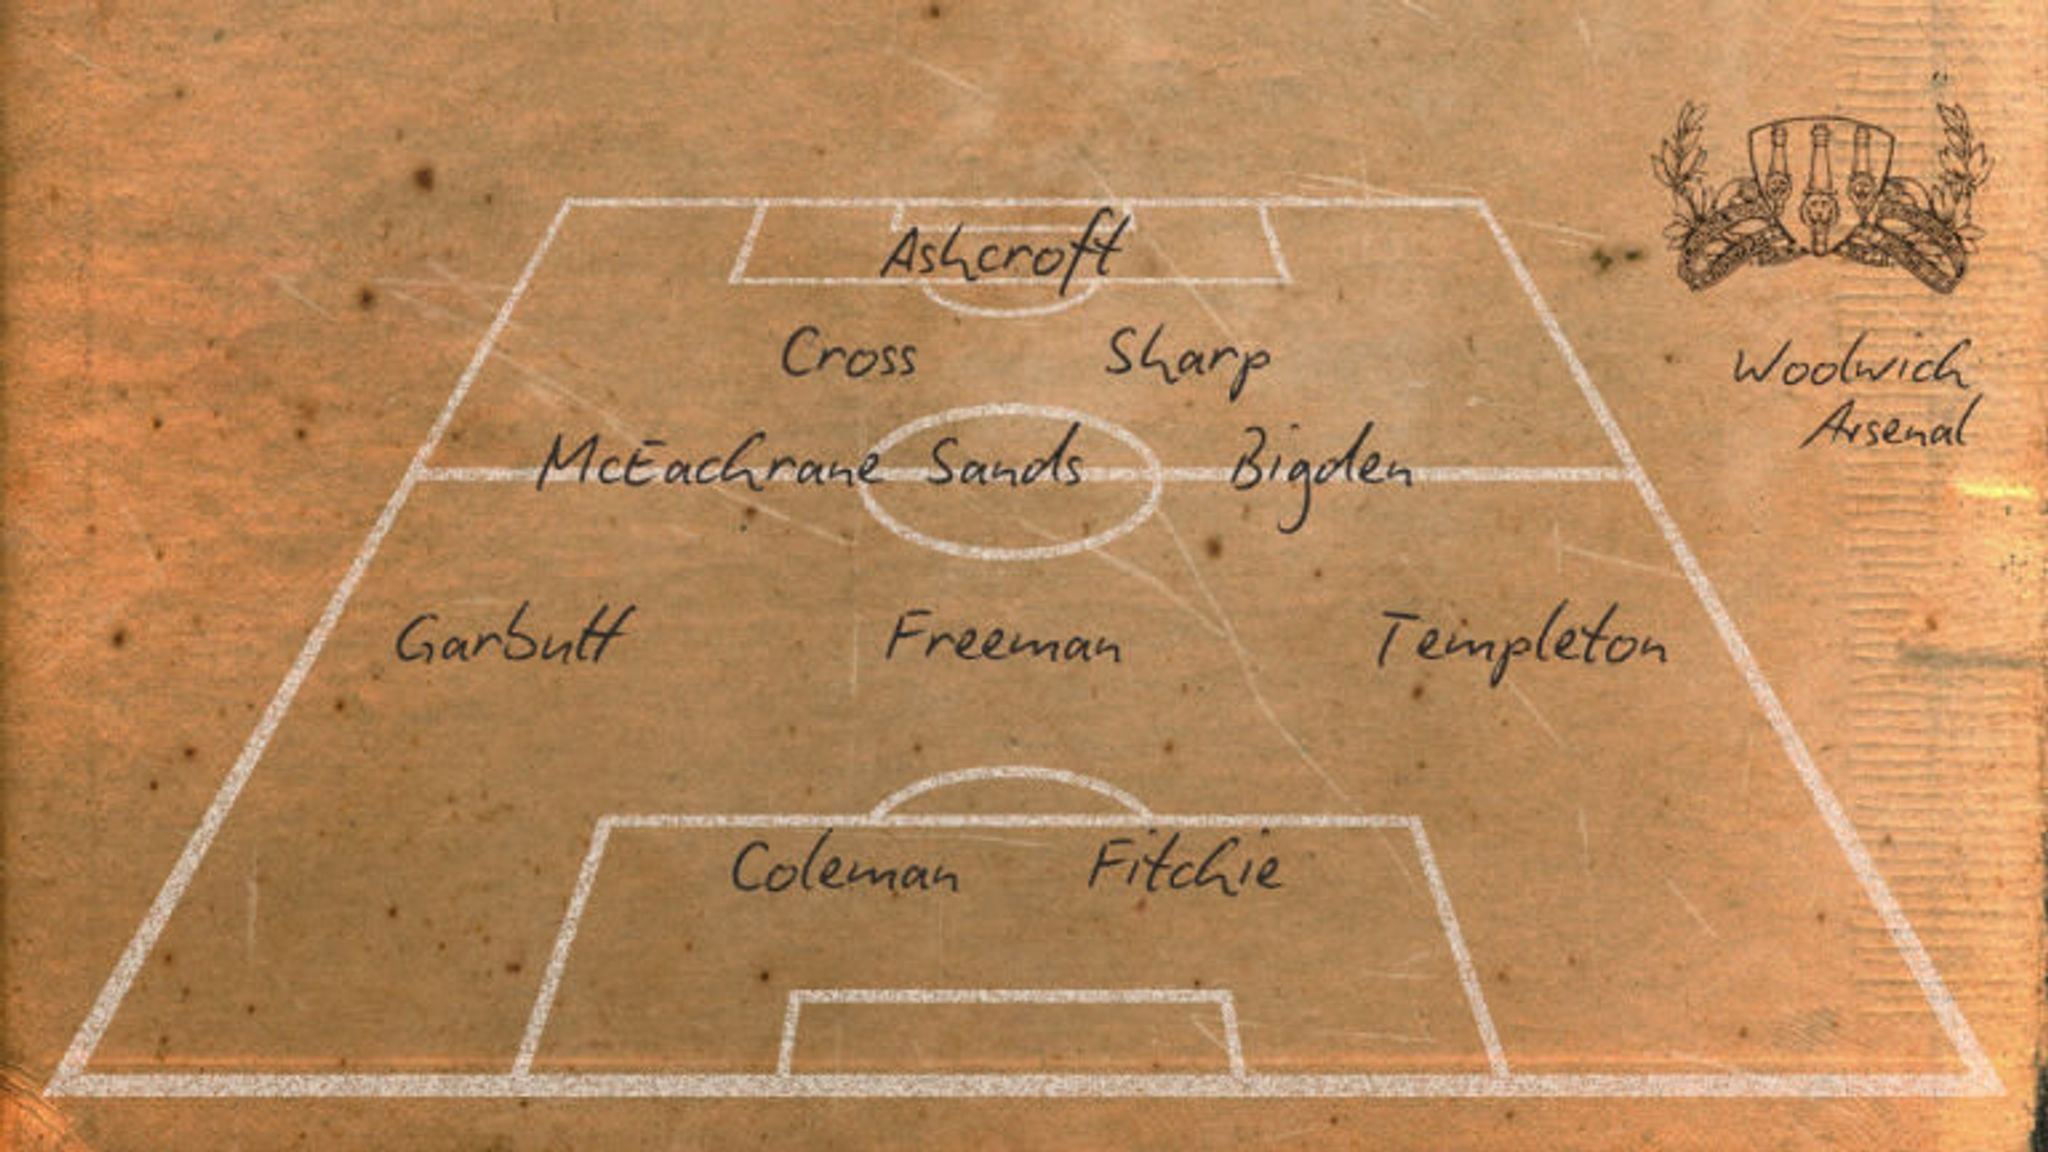 Ashcroft
Cross Sharp
Woolwich
Arsenal
McEachrane Sands Bigden
Garbutt Freeman Templeton
Coleman Fitchie